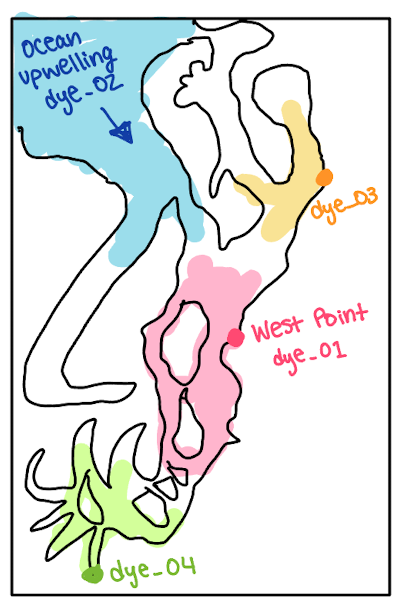 Ocean
upwelling
dye_02
dye_03
West Point
dye_01
dye_04